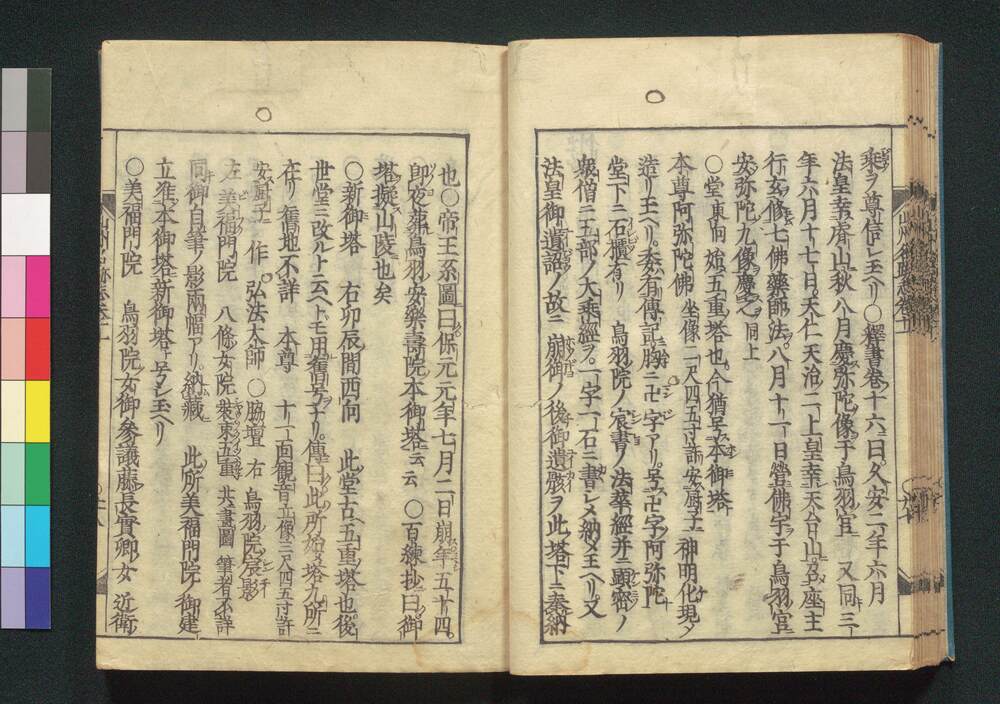 乗ヲ尊信シ玉ヘリ○釋書巻十六ニ曰久安二年六月
法皇幸磨山秋八月慶弥陀像于鳥羽宮 又同三
年六月十七日天仁天治二上皇幸天台山
行玄修七佛藥師法八月十一日營佛宇于鳥羽宮
安弥陀九像慶之 同上
○堂東向 五重塔也今猶号本御塔
本尊阿弥陀佛 坐像二尺四五寸許安厨子 神明化現ノ
造リ玉ヘリ委有傳記胸ニ卍字アリ号卍字阿弥陀
堂下ニ石櫃有リ 鳥羽院ノ宸書ノ法華經并ニ顕密ノ
衆僧ニ五部ノ大乗經ヲ一字一石ニ書シメ納メ玉ヘリ又
法皇御遺詔ノ故ニ 崩御ノ後御遺骸ヲ此塔下ニ奉納
也○帝王系圖曰保元元年七月二日崩年五十四
即夜葬鳥羽安樂壽院本御塔云云 ○百練抄曰御
塔擬山陵也矣
○新御塔 右卯辰間西向 此堂古五重塔也後
世堂ニ改ルト云ヘトモ用舊号ナリ傳曰此所始メ塔九所ニ
在リ舊地不詳 本尊 十一面觀音立像三尺四五寸許
安厨子 作 弘法大師 ○脇壇 右 鳥羽院宸影
左 美福門院 八條女院 裝束五重 共畫圖 筆者不詳
同御自筆ノ影兩幅アリ納藏 此所美福門院ノ御建
立准本御塔新御塔ト号シ玉ヘリ
○美福門院 鳥羽院女御參議藤長實卿女 近衛